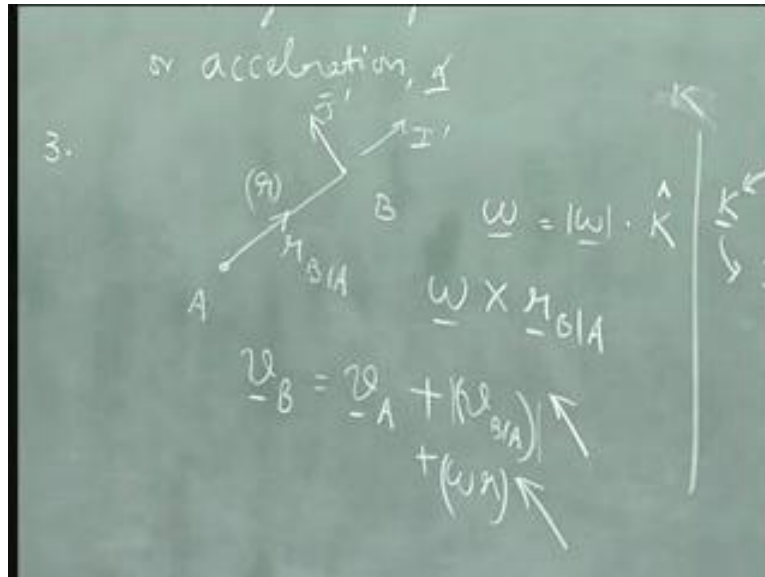 or acceleration, I
3.
J'
I'
(r)
B
r_B/A
A
K
ω = |ω| · K̂
K
ω × r_B/A
v_B = v_A + |(v_B/A)|
+ (ωr)